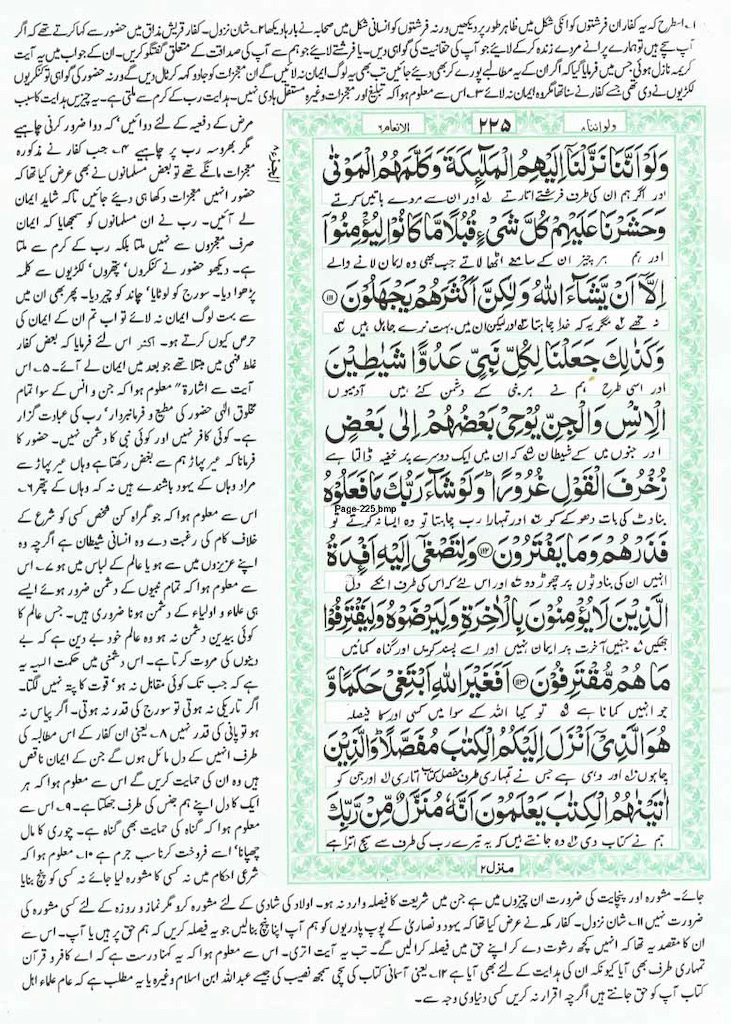 ۱۔ اسطرح کہ یہ کفار ان فرشتوں کو انکی شکل میں ظاہر طور پر دیکھیں ورنہ فرشتوں کو انسانی شکل میں صحابہ نے بارہا دیکھا ۲۔ شان نزول۔ کفار قریش مذاق میں حضور سے کہا کرتے تھے کہ اگر
آپ سچے ہیں تو ہمارے پرانے مردے زندہ کرکے لائیے جو آپ کی حقانیت کی گواہی دیں۔ یا فرشتے لائیے جو ہم سے آپ کی صداقت کے متعلق گفتگو کریں۔ ان کے جواب میں یہ آیت
کریمہ نازل ہوئی جس میں فرمایا گیا کہ اگر ان کے یہ مطالبے پورے کر بھی دیئے جائیں تب بھی یہ لوگ ایمان نہ لائیں گے ان معجزات کو جادو کہہ کر ٹال دیں گے ورنہ حضور کی گواہی تو کنکریوں
لکڑیوں نے دی تھی جسے کفار نے سنا تھا مگر وہ ایمان نہ لائے ۳۔ اس سے معلوم ہوا کہ تبلیغ اور معجزات وغیرہ مستقل ہادی نہیں۔ ہدایت رب کے کرم سے ملتی ہے۔ یہ چیزیں ہدایت کا سبب
ولواننا ۸
۲۲۵
الانعام ۶
وَلَوْ اَنَّنَا نَزَّلْنَاۤ اِلَیْهِمُ الْمَلٰٓىِٕكَةَ وَكَلَّمَهُمُ الْمَوْتٰى
اور اگر ہم ان کی طرف فرشتے اتارتے ۱ اور ان سے مردے باتیں کرتے
وَحَشَرْنَا عَلَیْهِمْ كُلَّ شَیْءٍ قُبُلًا مَّا كَانُوْا لِیُؤْمِنُوْۤا
اور ہم ہر چیز ان کے سامنے اٹھا لاتے جب بھی وہ ایمان لانے والے
اِلَّاۤ اَنْ یَّشَآءَ اللّٰهُ وَلٰكِنَّ اَكْثَرَهُمْ یَجْهَلُوْنَ ﴿۱۱۱﴾
نہ تھے مگر یہ کہ خدا چاہتا اور لیکن ان میں بہت نرے جاہل ہیں
وَكَذٰلِكَ جَعَلْنَا لِكُلِّ نَبِیٍّ عَدُوًّا شَیٰطِیْنَ
اور اسی طرح ہم نے ہر نبی کے دشمن کئے ہیں آدمیوں
الْاِنْسِ وَالْجِنِّ یُوْحِیْ بَعْضُهُمْ اِلٰى بَعْضٍ
اور جنوں میں کے شیطان کہ ان میں ایک دوسرے پر خفیہ ڈالتا ہے
زُخْرُفَ الْقَوْلِ غُرُوْرًا ؕ وَلَوْ شَآءَ رَبُّكَ مَا فَعَلُوْهُ
Page-225.bmp
بناوٹ کی بات دھوکے کو اور تمہارا رب چاہتا تو وہ ایسا نہ کرتے تو
فَذَرْهُمْ وَمَا یَفْتَرُوْنَ ﴿۱۱۲﴾ وَلِتَصْغٰۤى اِلَیْهِ اَفْـِٕدَةُ
انہیں ان کی بناوٹوں پر چھوڑ دو اور اس لئے کہ اس کی طرف انکے دل
الَّذِیْنَ لَا یُؤْمِنُوْنَ بِالْاٰخِرَةِ وَلِیَرْضَوْهُ وَلِیَقْتَرِفُوْا
جھکیں جنہیں آخرت پر ایمان نہیں اور اسے پسند کریں اور گناہ کمائیں
مَا هُمْ مُّقْتَرِفُوْنَ ﴿۱۱۳﴾ اَفَغَیْرَ اللّٰهِ اَبْتَغِیْ حَكَمًا وَّ
جو انہیں کمانا ہے تو کیا اللہ کے سوا میں کسی اور کا فیصلہ
هُوَ الَّذِیْۤ اَنْزَلَ اِلَیْكُمُ الْكِتٰبَ مُفَصَّلًا ؕ وَالَّذِیْنَ
چاہوں اور وہی ہے جس نے تمہاری طرف مفصل کتاب اتاری اور جن کو
اٰتَیْنٰهُمُ الْكِتٰبَ یَعْلَمُوْنَ اَنَّهٗ مُنَزَّلٌ مِّنْ رَّبِّكَ
ہم نے کتاب دی وہ جانتے ہیں کہ یہ تیرے رب کی طرف سے سچ اترا ہے
منزل ۲
مرض کے دفعیہ کے لئے دوائیں' کہ دوا ضرور کرنی چاہیے
مگر بھروسہ رب پر چاہیے ۴۔ جب کفار نے مذکورہ
معجزات مانگے تھے تو بعض مسلمانوں نے بھی عرض کیا تھا کہ
حضور انہیں معجزات دکھا ہی دیئے جائیں تاکہ شاید ایمان
لے آئیں۔ رب نے ان مسلمانوں کو سمجھایا کہ ایمان
صرف معجزوں سے نہیں ملتا بلکہ رب کے کرم سے ملتا
ہے۔ دیکھو حضور نے کنکروں' پتھروں' لکڑیوں سے کلمہ
پڑھوا دیا۔ سورج کو لوٹایا' چاند کو چیر دیا۔ پھر بھی ان میں
سے بہت لوگ ایمان نہ لائے تو اب تم ان کے ایمان کی
حرص کیوں کرتے ہو۔ اکثر اس لئے فرمایا کہ بعض کفار
غلط فہمی میں مبتلا تھے جو بعد میں ایمان لے آئے۔ ۵۔ اس
آیت سے اشارۃً معلوم ہوا کہ جن و انس کے سوا تمام
مخلوق الٰہی حضور کی مطیع و فرمانبردار' رب کی عبادت گزار
ہے۔ کوئی کافر نہیں اور کوئی نبی کا دشمن نہیں۔ حضور کا
فرمانا کہ عیر پہاڑ ہم سے بغض رکھتا ہے وہاں عیر پہاڑ سے
مراد وہاں کے یہود باشندے ہیں نہ کہ وہاں کے پتھر ۶۔
اس سے معلوم ہوا کہ جو گمراہ کن شخص کسی کو شرع کے
خلاف کام کی رغبت دے وہ انسانی شیطان ہے اگرچہ وہ
اپنے عزیزوں میں سے ہو یا عالم کے لباس میں ہو ۷۔ اس
سے معلوم ہوا کہ تمام نبیوں کے دشمن ضرور ہوئے ایسے
ہی علماء و اولیاء کے دشمن ہونا ضروری ہیں۔ جس عالم کا
کوئی بیدین دشمن نہ ہو وہ عالم خود بے دین ہے کہ بے
دینوں کی مروت کرتا ہے۔ اس دشمنی میں حکمت الٰہیہ یہ
ہے کہ جب تک کوئی مقابل نہ ہو' قوت کا پتہ نہیں لگتا۔
اگر تاریکی نہ ہوتی تو سورج کی قدر نہ ہوتی۔ اگر پیاس نہ
ہو تو پانی کی قدر نہیں ۸۔ یعنی ان کفار کے اس مطالبہ کی
طرف انہیں کے دل مائل ہوں گے جن کے ایمان ناقص
ہیں وہ ان کی حمایت کریں گے اس سے معلوم ہوا کہ ہر
ایک کا دل اپنے ہم جنس کی طرف جھکتا ہے۔ ۹۔ اس سے
معلوم ہوا کہ گناہ کی حمایت بھی گناہ ہے۔ چوری کا مال
چھپانا' اسے فروخت کرنا سب جرم ہے ۱۰۔ معلوم ہوا کہ
شرعی احکام میں نہ کسی کا مشورہ لیا جائے نہ کسی کو پنچ بنایا
جائے۔ مشورہ اور پنچایت کی ضرورت ان چیزوں میں ہے جن میں شریعت کا فیصلہ وارد نہ ہو۔ اولاد کی شادی کے لئے مشورہ کرو مگر نماز و روزہ کے لئے کسی مشورہ کی
ضرورت نہیں ۱۱۔ شان نزول۔ کفار مکہ نے عرض کیا تھا کہ یہود و نصاریٰ کے پوپ پادریوں کو ہم آپ اپنا پنچ بنالیں جو یہ فیصلہ کریں کہ ہم حق پر ہیں یا آپ۔ اس سے
ان کا مقصد یہ تھا کہ انہیں کچھ رشوت دے کر اپنے حق میں فیصلہ کرالیں گے۔ تب یہ آیت اتری۔ اس سے معلوم ہوا کہ یہ کہنا درست ہے کہ اے کافرو قرآن
تمہاری طرف بھی آیا کیونکہ ان کی ہدایت کے لئے بھی آیا ہے ۱۲۔ یعنی آسمانی کتاب کی سچی سمجھ نصیب کی جیسے عبداللہ ابن سلام وغیرہ یا یہ مطلب ہے کہ عام علماء اہل
کتاب آپ کو حق جانتے ہیں اگرچہ اقرار نہ کریں کسی دنیاوی وجہ سے۔